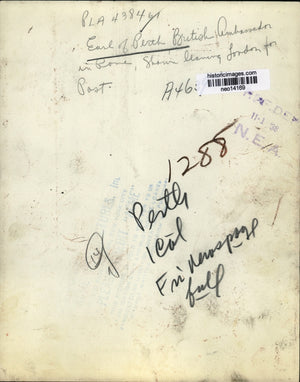 PLA 438461
Earl of Perth British Ambassador
in Rome, Shown leaving London for
Post.
A46
historicimages.com
neo14169
11-1-38
N.E.A.
1288
Perth
1 Col
Fri newspage
full